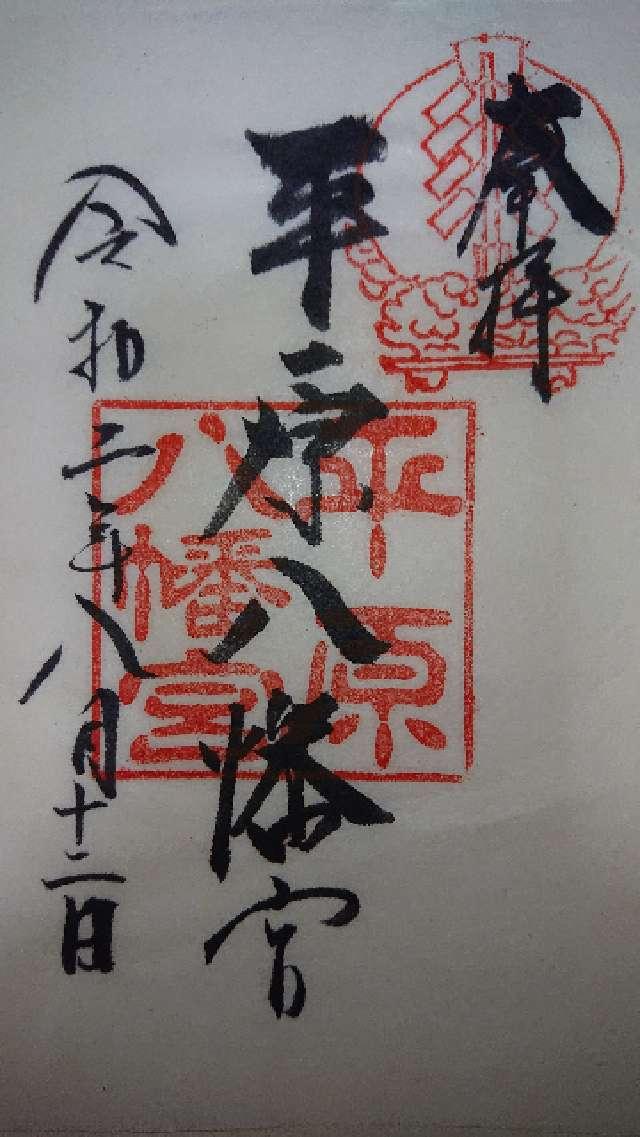 奉拝
平原八幡宮
平原
八幡宮
令和二年八月十二日